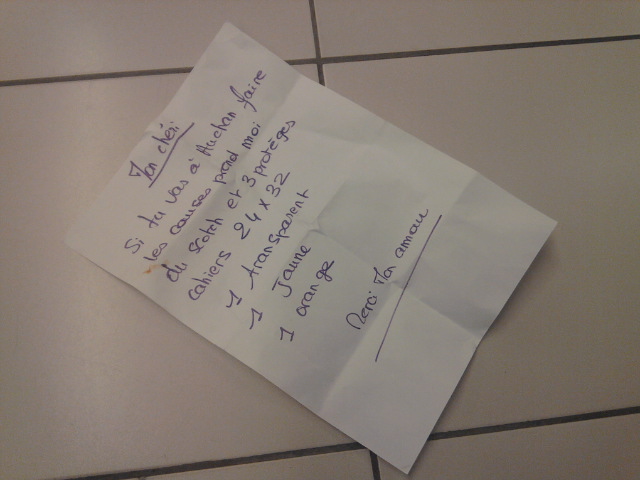 Mon chéri
Si tu vas à Auchan faire
les courses prend moi
du scotch et 3 protèges
cahiers 24 x 32
1 transparent
1 Jaune
1 orange
Merci Mon amour